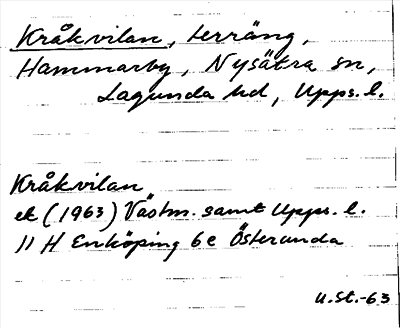 Kråkvilan, terräng,
Hammarby, Nysätra sn,
Lagunda hd, Upps. l.
Kråkvilan
ek (1963) Västm. samt Upps. l.
11 H Enköping 6e Österunda
U.St.-63